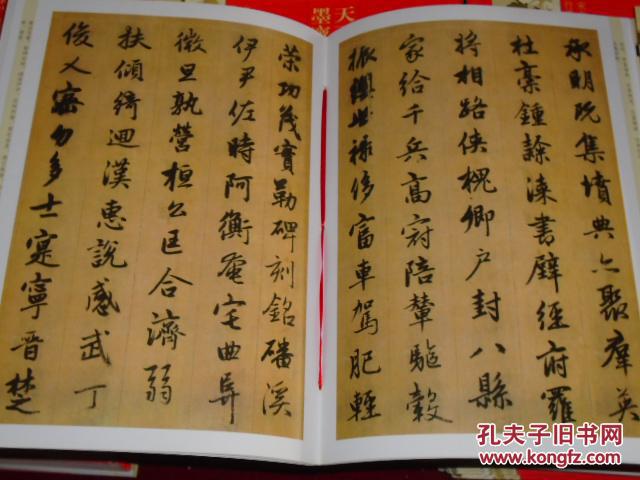 承明既集墳典亦聚群英
杜稾鍾隸漆書壁經府羅
將相路俠槐卿戶封八縣
家給千兵高冠陪輦驅轂
振纓世祿侈富車駕肥輕
策功茂實勒碑刻銘磻溪
伊尹佐時阿衡奄宅曲阜
微旦孰營桓公匡合濟弱
扶傾綺迴漢惠說感武丁
俊乂密勿多士寔寧晉楚
天
墨
孔夫子旧书网
www.kongfz.com